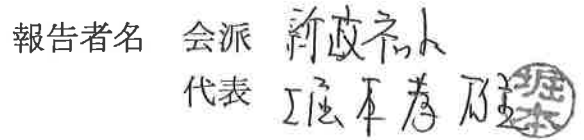 報告者名 会派 新政ネット
代表 堀本孝雄 堀本